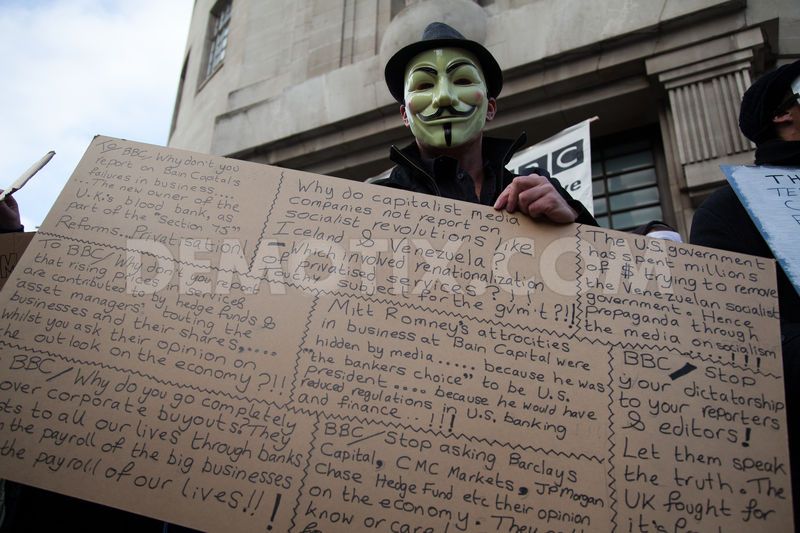 To BBC/ Why don't you
report on Bain Capital's
failures in business...
...The new owner of the
U.K.'s blood bank, as
part of the "section 75"
Reforms. Privatisation
Why do capitalist media
companies not report on
socialist revolutions like
Iceland & Venezuela?
which involved renationalization
of privatised services? Taboo
subject for the gvm't?!!!
The U.S. government
has spent millions
of $ trying to remove
the Venezuelan socialist
government. Hence
Propaganda through
the media on socialism
....!!!
To BBC/ Why don't you report
that rising prices & services
are contributed by hedge funds &
"asset managers", touting the
businesses and their shares,....
whilst you ask their opinion on
the out look on the economy?!!
Mitt Romney's attrocities
in business at Bain Capital were
hidden by media ..... because he was
"the bankers choice" to be U.S.
President .... because he would have
reduced regulations in U.S. banking
and finance...!!!
BBC/ Stop
your dictatorship
to your reporters
& editors!
Let them speak
the truth. The
UK fought for
it's
BBC/ Why do you go completely
over corporate buyouts? They
to all our lives through banks
the payroll of the big businesses
the payroll of our lives!!!
BBC/ Stop asking Barclays
Capital, CMC Markets, JPMorgan
Chase Hedge Fund etc their opinion
on the economy. They
know or care!
DEMOTIX.COM